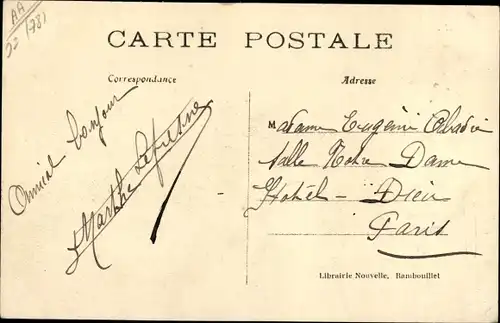 AA
CARTE POSTALE
Correspondance
Adresse
Amical bonjour
Marthe
Madame Eugénie Abadie
Salle Notre Dame
Hôtel-Dieu
Paris
Librairie Nouvelle, Rambouillet